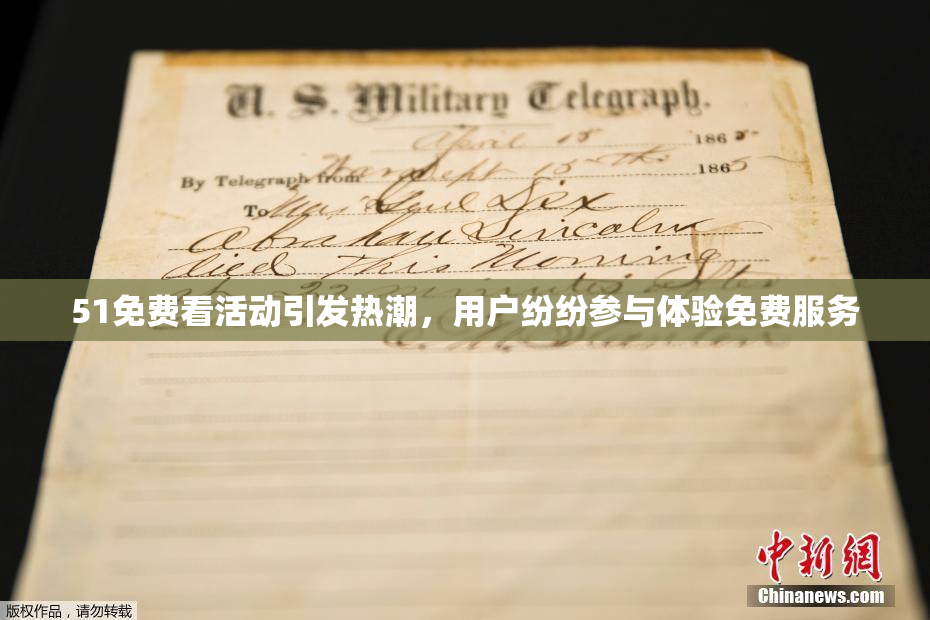 U. S. Military Telegraph.
April 15 1865
By Telegraph from War Dept 15th 1865
To Maj Genl Dix
Abraham Lincoln
died This Morning
22 minutes after
51免费看活动引发热潮，用户纷纷参与体验免费服务
E. M. Stanton
中新网
Chinanews.com
版权作品，请勿转载